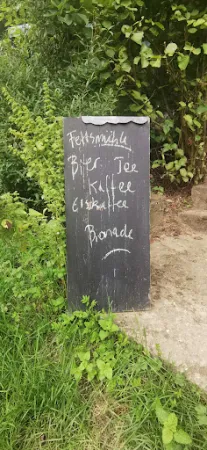 Feltsmühle
Bier Tee
Kaffee
Eiskaffee
Bionade